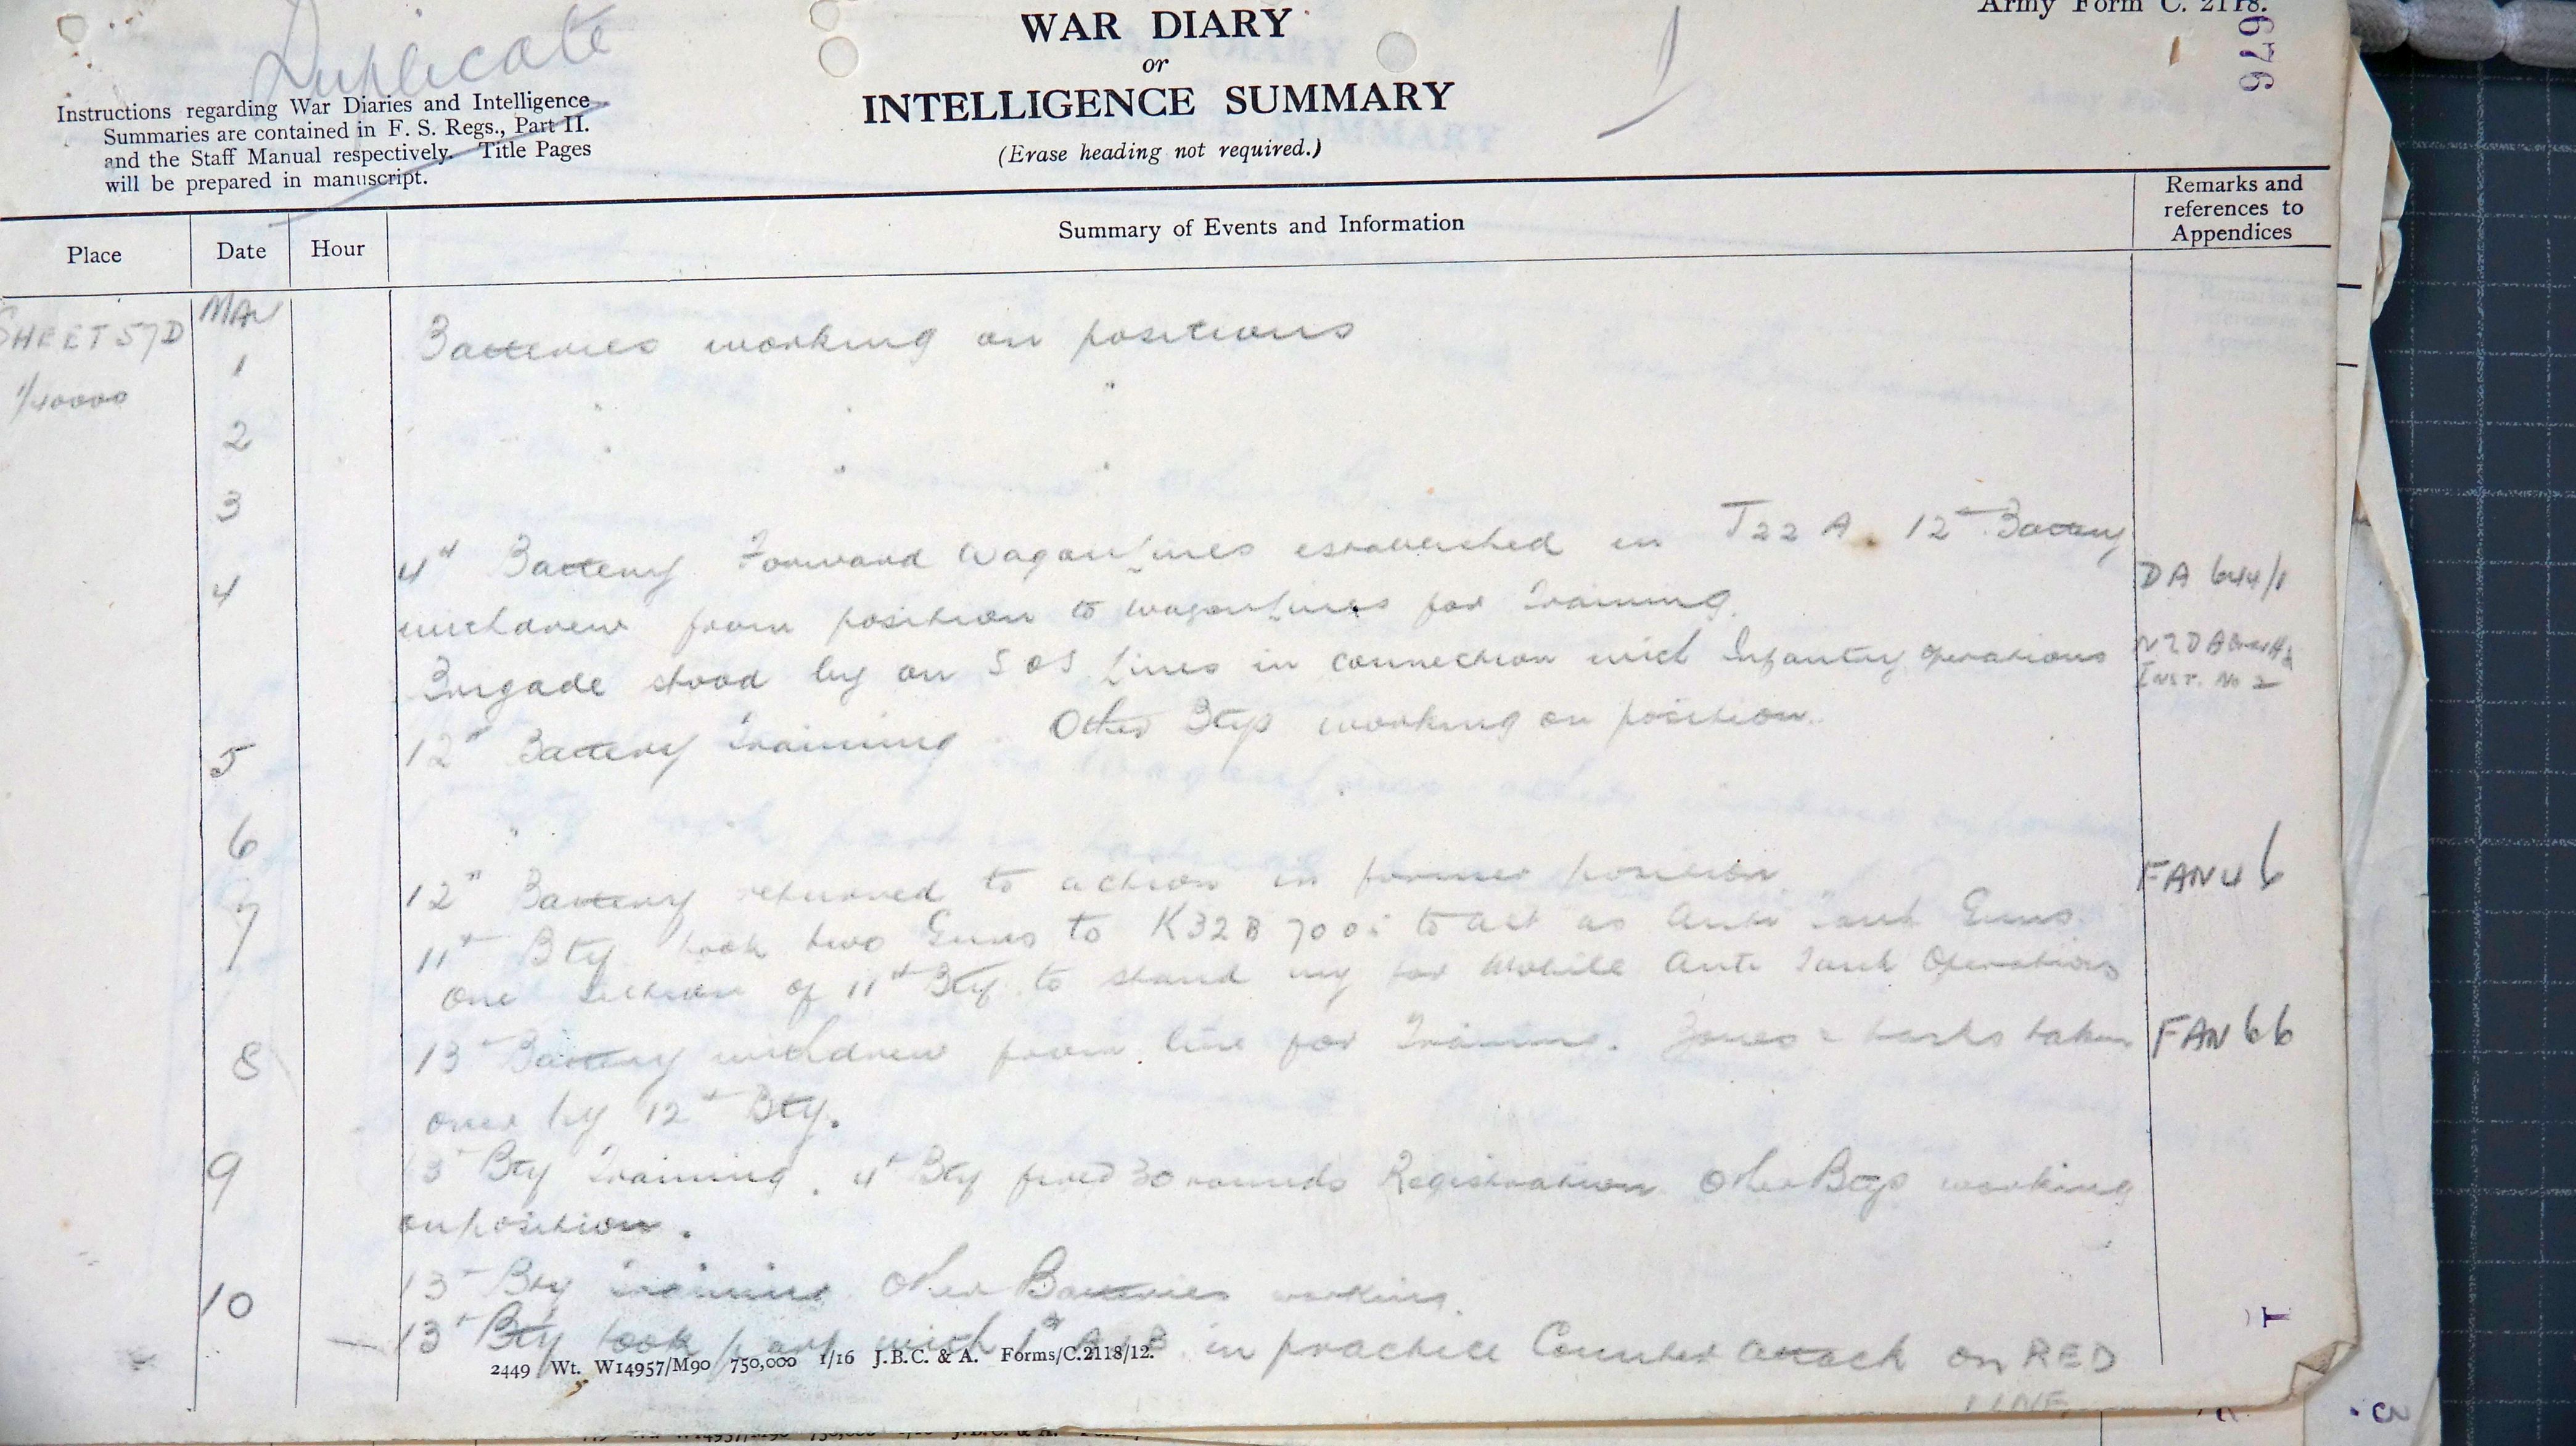 Duplicate
Army Form C. 2118.
676
WAR DIARY
or
INTELLIGENCE SUMMARY
(Erase heading not required.)
Instructions regarding War Diaries and Intelligence
Summaries are contained in F. S. Regs., Part II.
and the Staff Manual respectively. Title Pages
will be prepared in manuscript.
Place
Date
Hour
Summary of Events and Information
Remarks and
references to
Appendices
SHEET 57D
1/40000
MAY
1 Batteries working on positions
2 " " "
3 " " "
4 4th Battery Forward Wagon Lines established in J22 A. 12th Battery
withdrew from position to wagon Lines for Training. DA 644/1
Brigade stood by on SOS Lines in connection with Infantry operations
INST. No 2
5 12th Battery Training. Other Btys working on position.
6 "
7 12th Battery returned to action in former position FAN 46
11th Bty took two Guns to K32B 7005 to act as Anti Tank Guns
One Section of 11th Bty to stand by for Mobile Anti Tank Operations
8 13th Battery withdrew from line for Training. Zones & tasks taken FAN 66
over by 12th Bty.
9 13th Bty Training. 4th Bty fired 30 rounds Registration Other Btys working
on position.
10 13th Bty training Other Batteries working.
13th Bty took part with in practice Counter attack on RED
LINE
2449 Wt. W14957/M90 750,000 1/16 J.B.C. & A. Forms/C.2118/12.